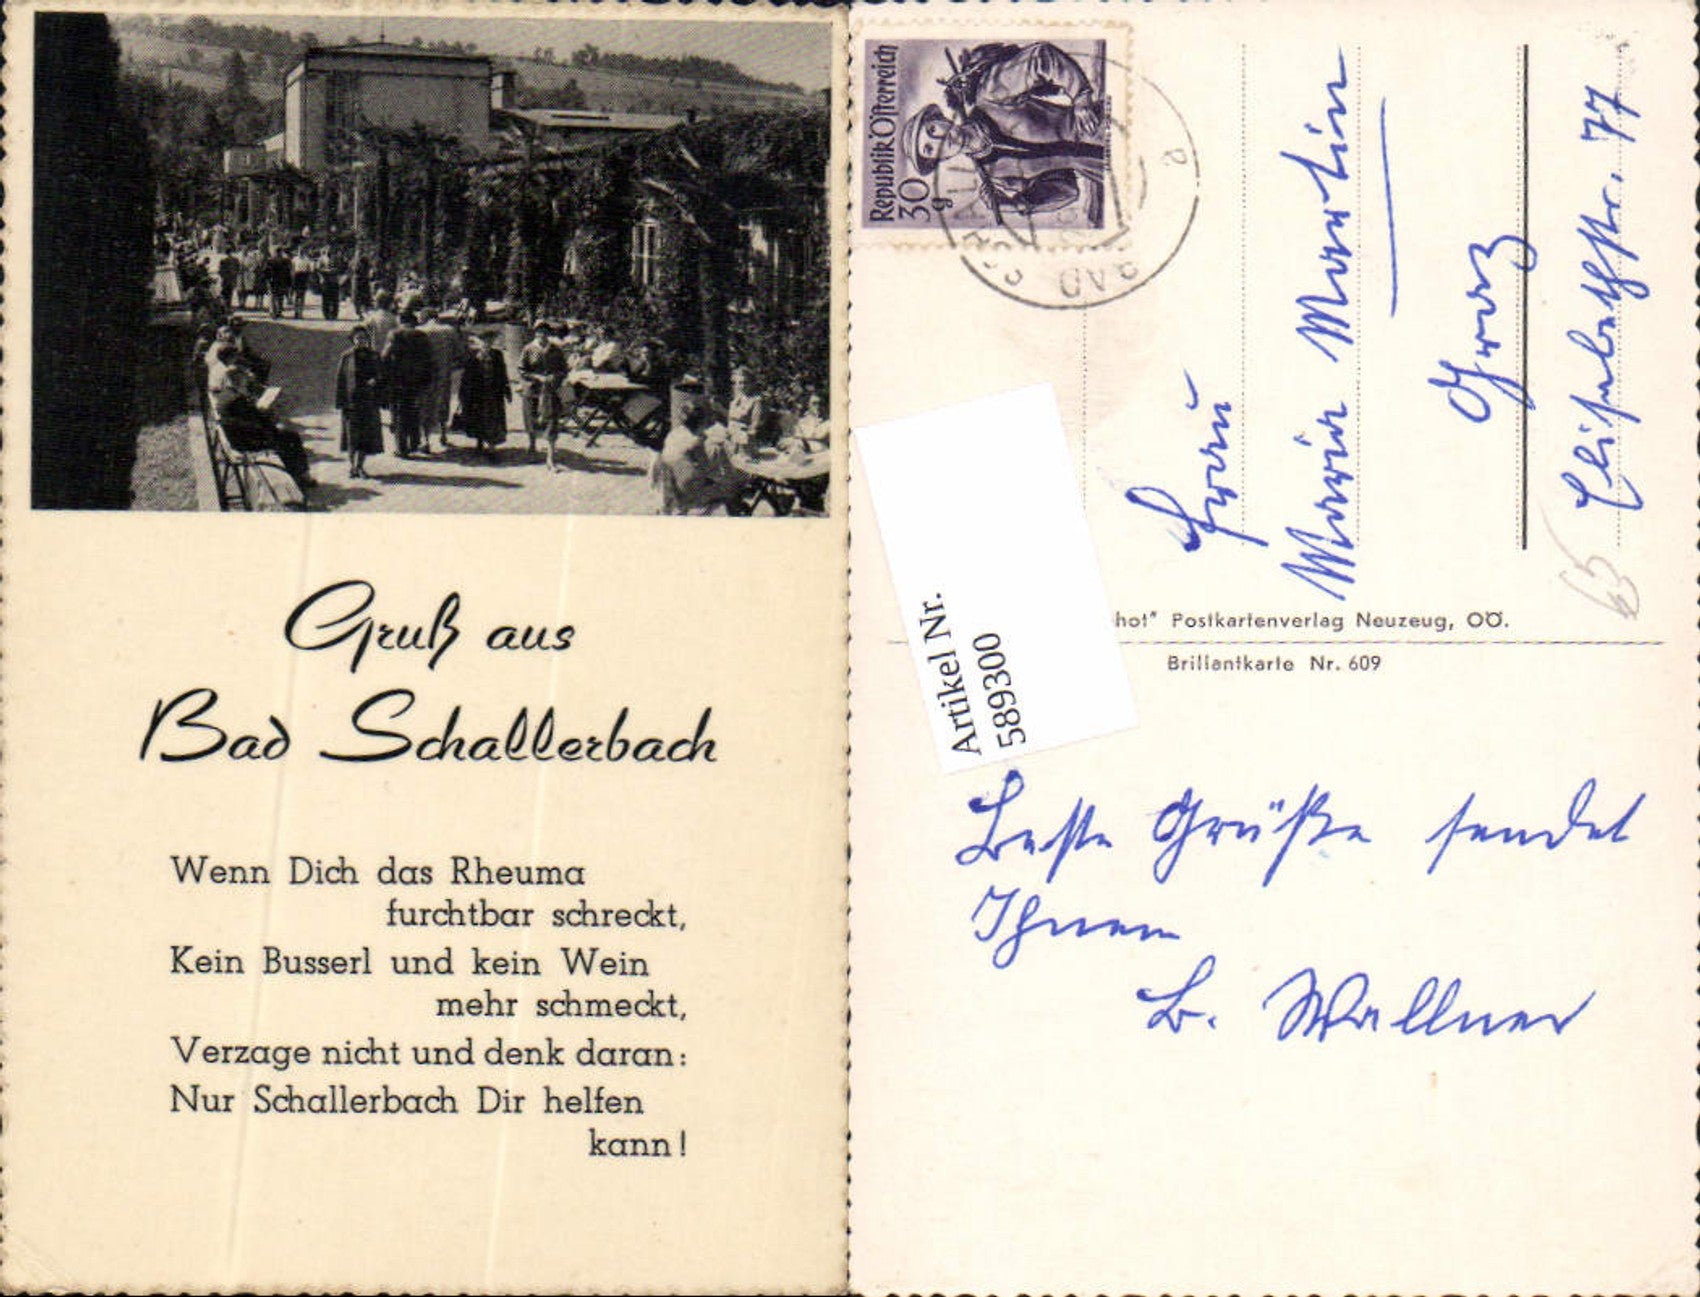 Gruß aus
Bad Schallerbach
Wenn Dich das Rheuma
furchtbar schreckt,
Kein Busserl und kein Wein
mehr schmeckt,
Verzage nicht und denk daran:
Nur Schallerbach Dir helfen
kann!
Republik Österreich
30
g
BAD SCHALL
a
Frau
Maria Martin
Graz
Elisabethstr. 77
65
hot" Postkartenverlag Neuzeug, OÖ.
Brillantkarte Nr. 609
Artikel Nr.
589300
Beste Grüße sendet
Ihnen
B. Wallner